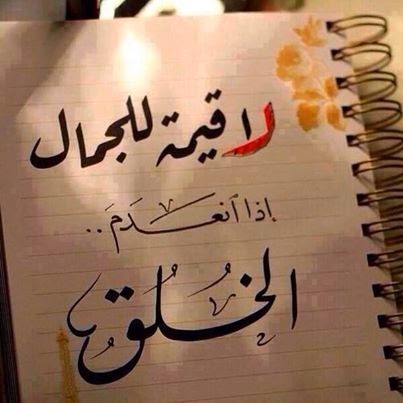 لا قيمة للجمال
إذا انعدمَ..
الخُلُق